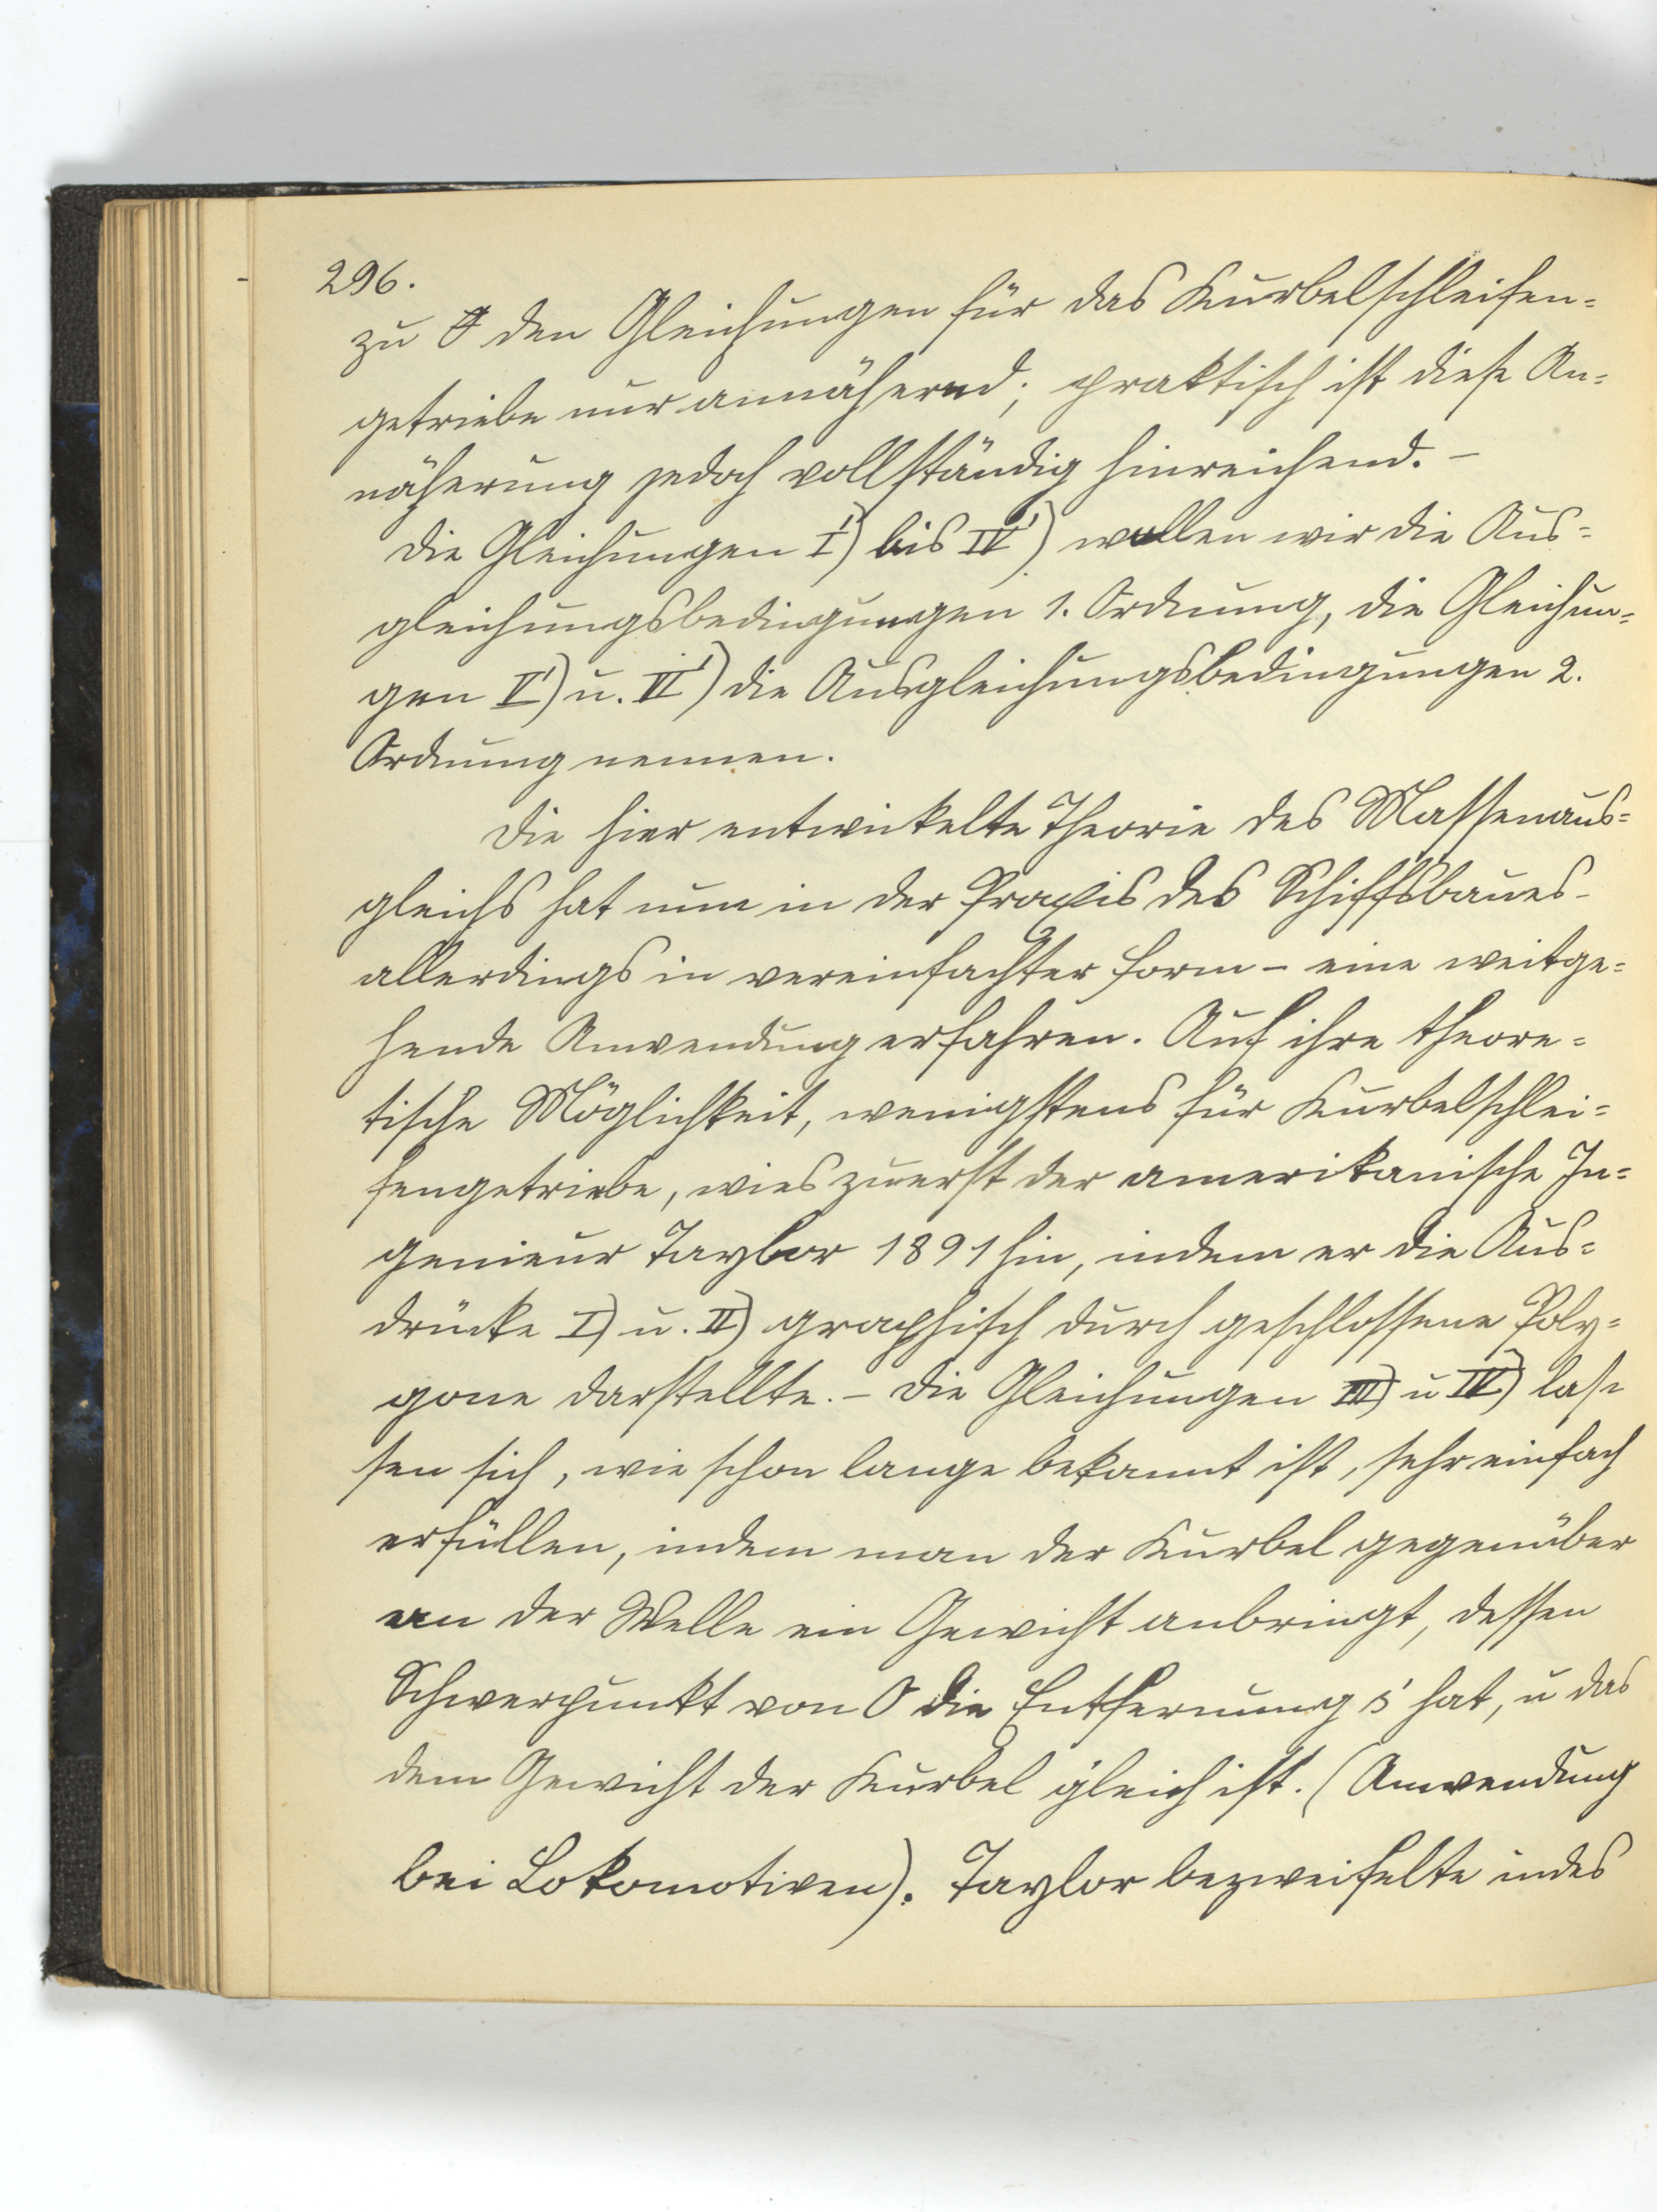 296.
zu den Gleichungen für das Kurbelschleifen=
getriebe nur annähernd; praktisch ist diese An=
näherung jedoch vollständig hinreichend. –
Die Gleichungen I') bis IV') wollen wir die Aus=
gleichungsbedingungen 1. Ordnung, die Gleichun=
gen V') u. VI') die Ausgleichungsbedingungen 2.
Ordnung nennen.
Die hier entwickelte Theorie des Massenaus=
gleichs hat nun in der Praxis des Schiffsbaues –
allerdings in vereinfachter Form – eine weitge=
hende Anwendung erfahren. Auf ihre theore=
tische Möglichkeit, wenigstens für Kurbelschlei=
fengetriebe, wies zuerst der amerikanische In=
genieur Taylor 1891 hin, indem er die Aus=
drücke I) u. II) graphisch durch geschlossene Poly=
gone darstellte. – Die Gleichungen III) u IV) las=
sen sich, wie schon lange bekannt ist, sehr einfach
erfüllen, indem man der Kurbel gegenüber
an der Welle ein Gewicht anbringt, dessen
Schwerpunkt von O die Entfernung s' hat, u das
dem Gewicht der Kurbel gleich ist. (Anwendung
bei Lokomotiven). Taylor bezweifelte indes